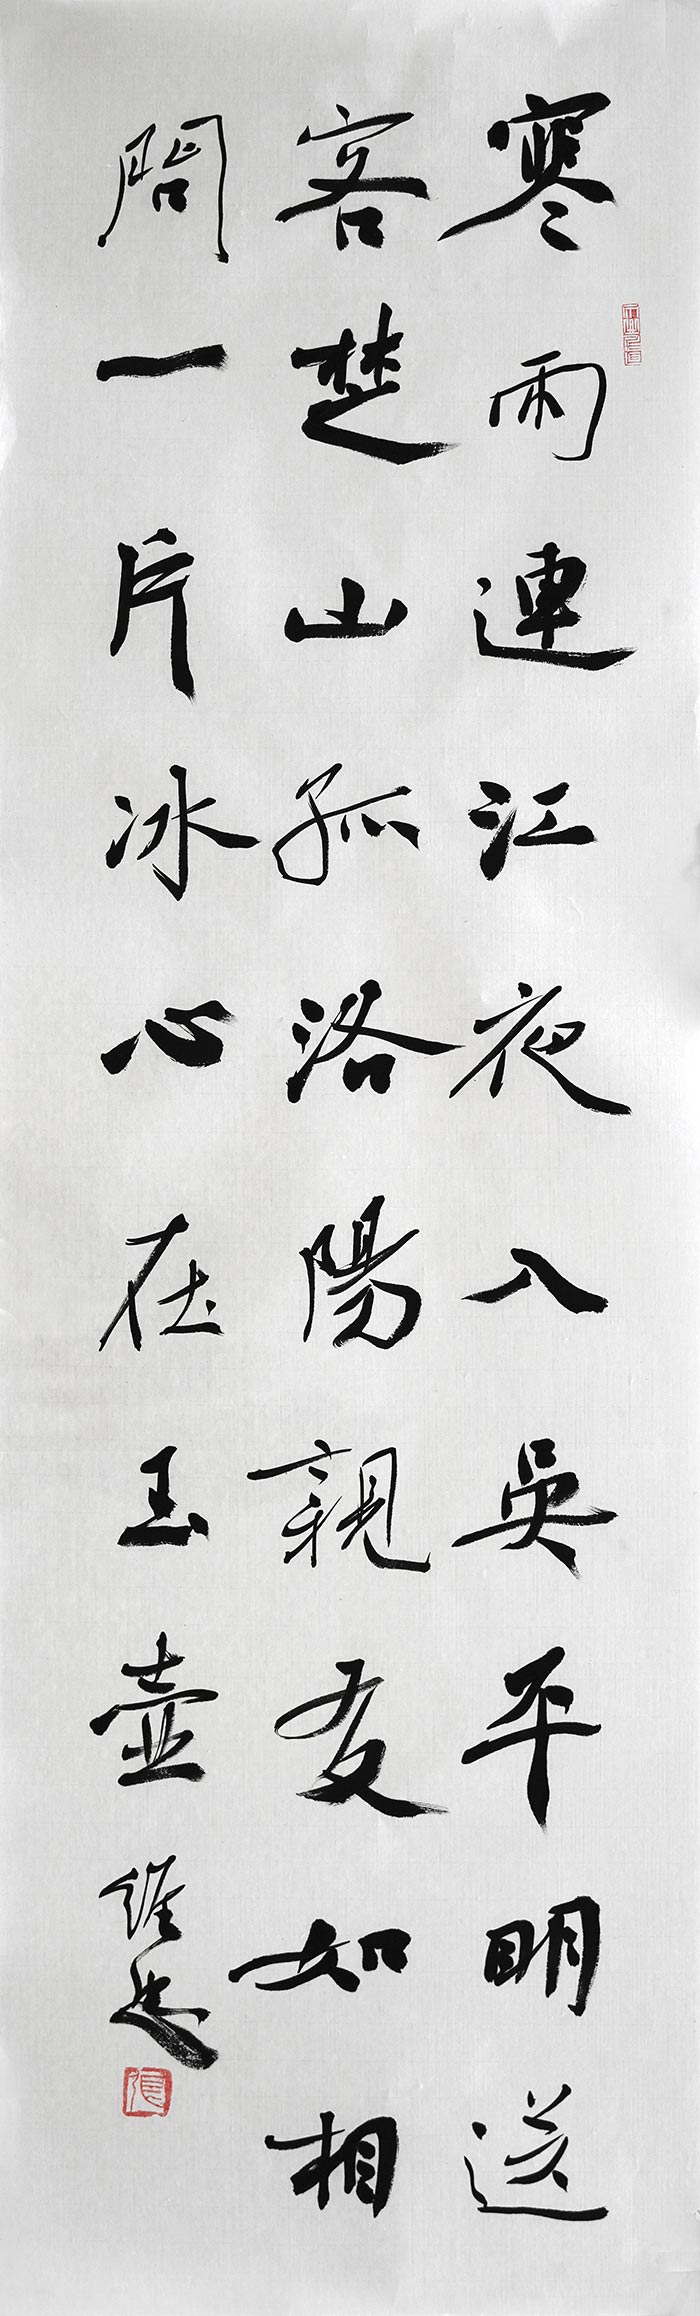 寒雨連江夜入吳平明送
客楚山孤洛陽親友如相
問一片冰心在玉壺
張